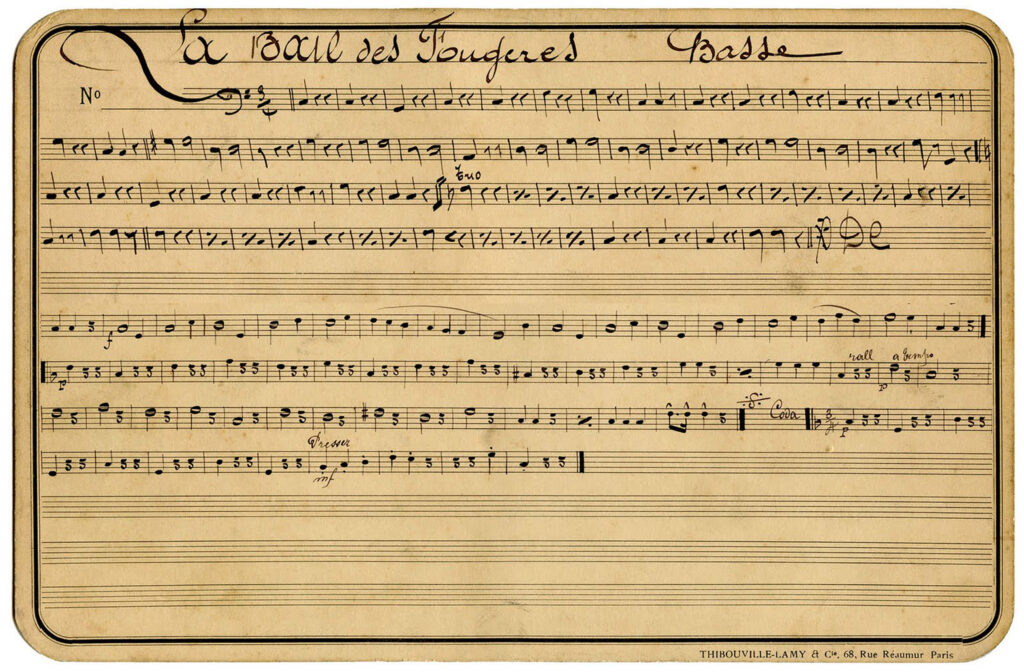 La Bal des Fougeres Basse
Nº
Trio
DC
f
rall a tempo
p p
Coda
p
Presser
mf
THIBOUVILLE-LAMY & Cie, 68, Rue Réaumur Paris